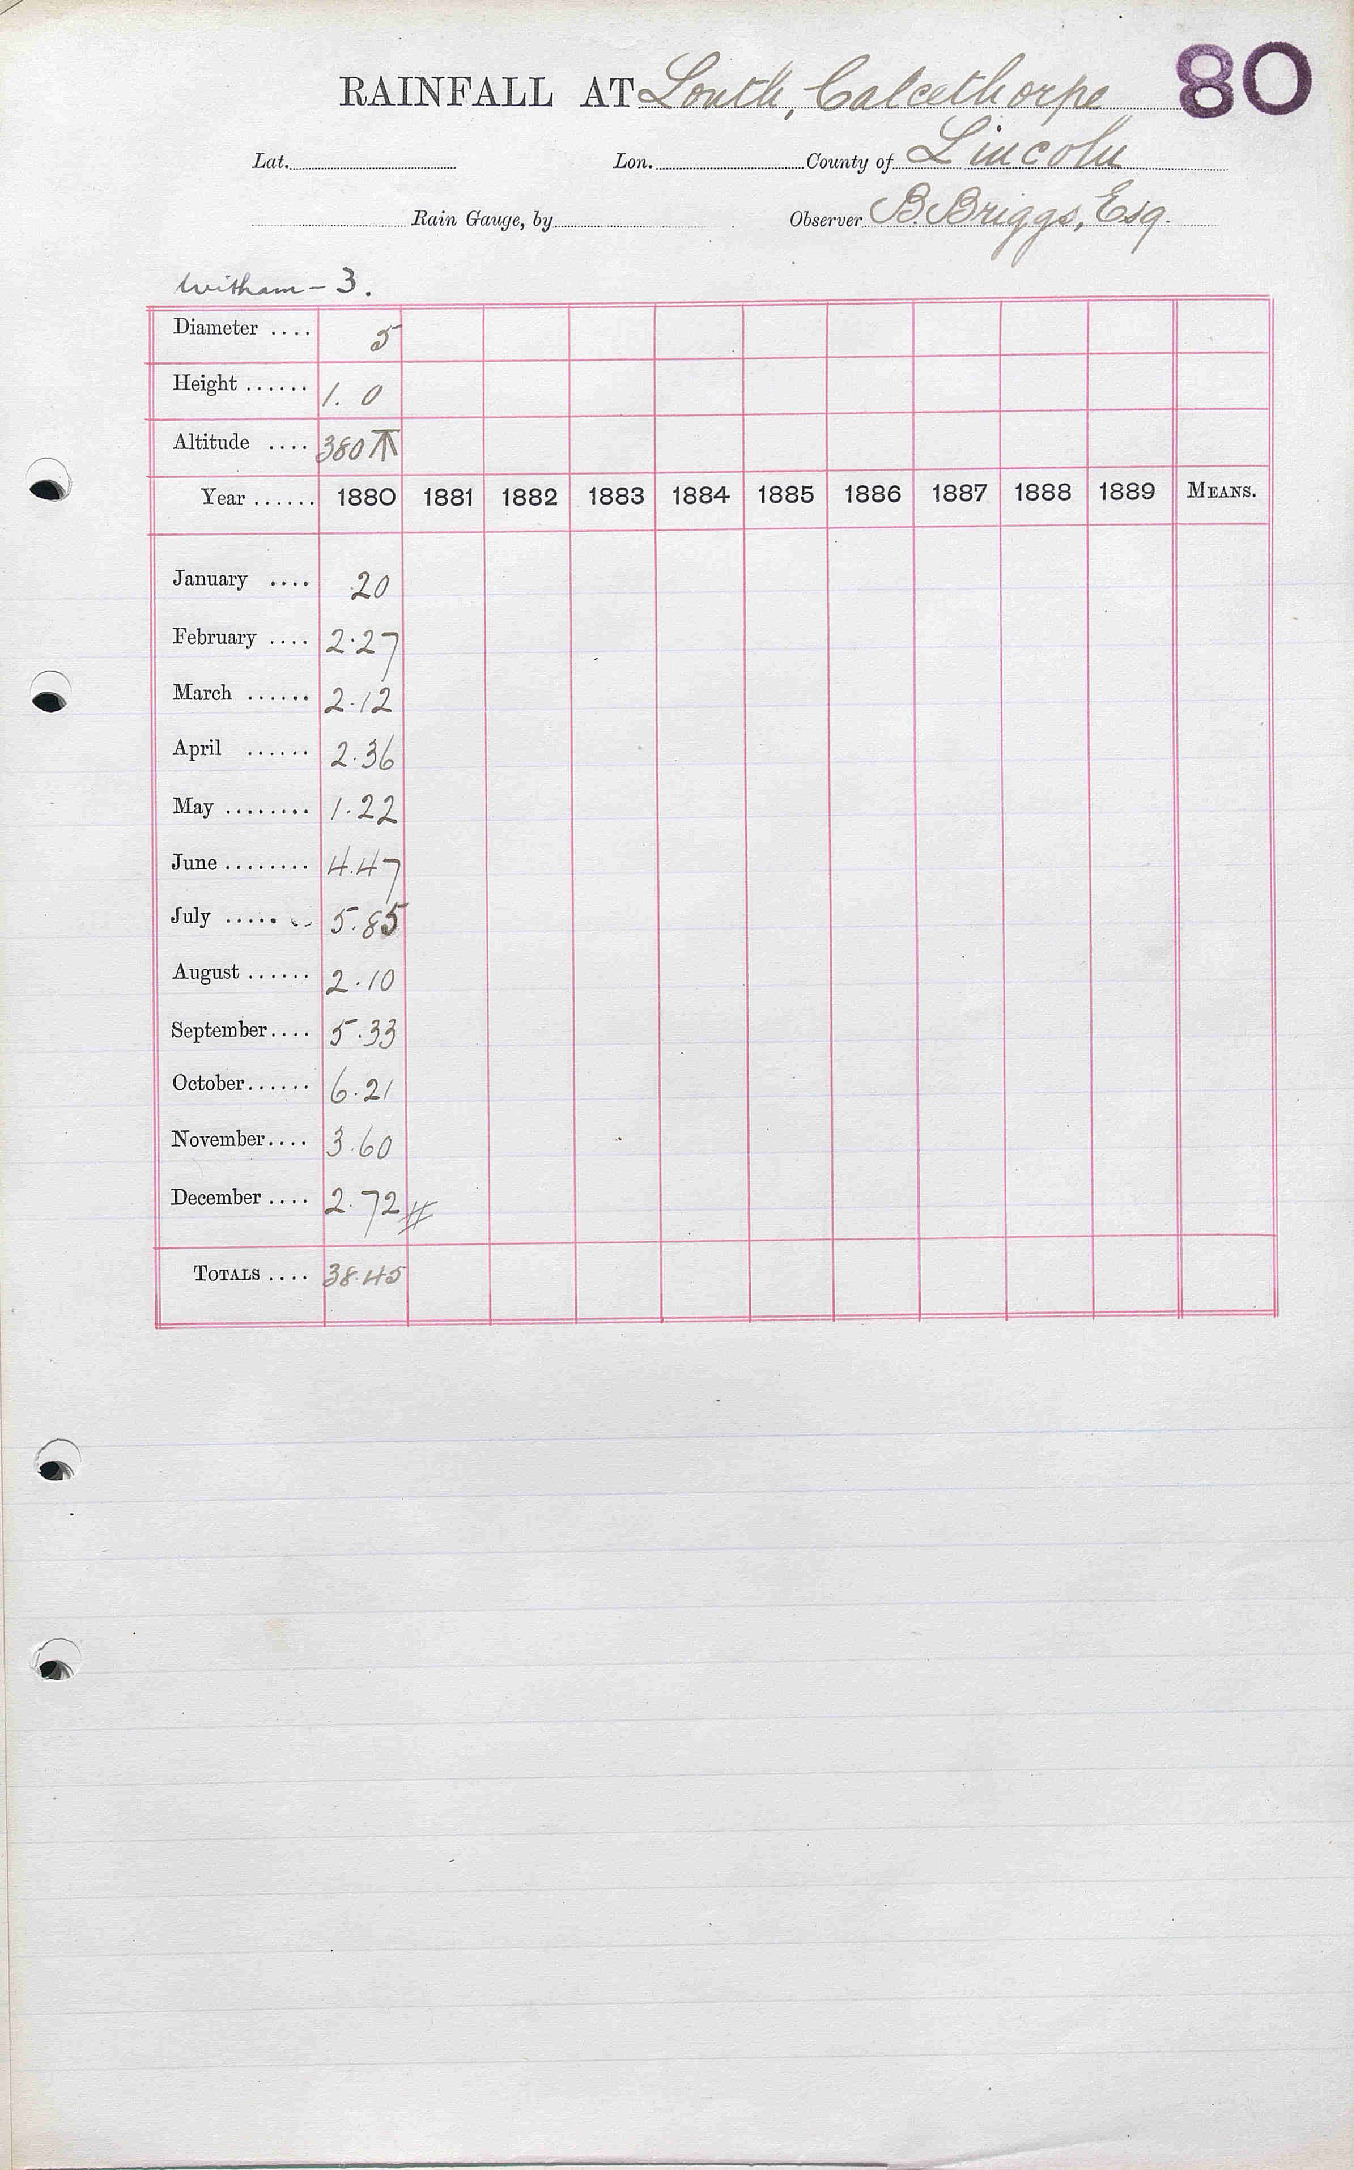 RAINFALL AT Louth, Calcethorpe 80
Lat. Lon. County of Lincoln
Rain Gauge, by Observer B. Briggs, Esq.
Witham - 3.
Diameter .... 5
Height ...... 1. 0
Altitude .... 380
Year ...... 1880 1881 1882 1883 1884 1885 1886 1887 1888 1889 MEANS.
January .... .20
February .... 2.27
March ...... 2.12
April ...... 2.36
May ........ 1.22
June ........ 4.47
July ....... 5.85
August ...... 2.10
September .... 5.33
October ...... 6.21
November .... 3.60
December .... 2.72 #
TOTALS .... 38.45